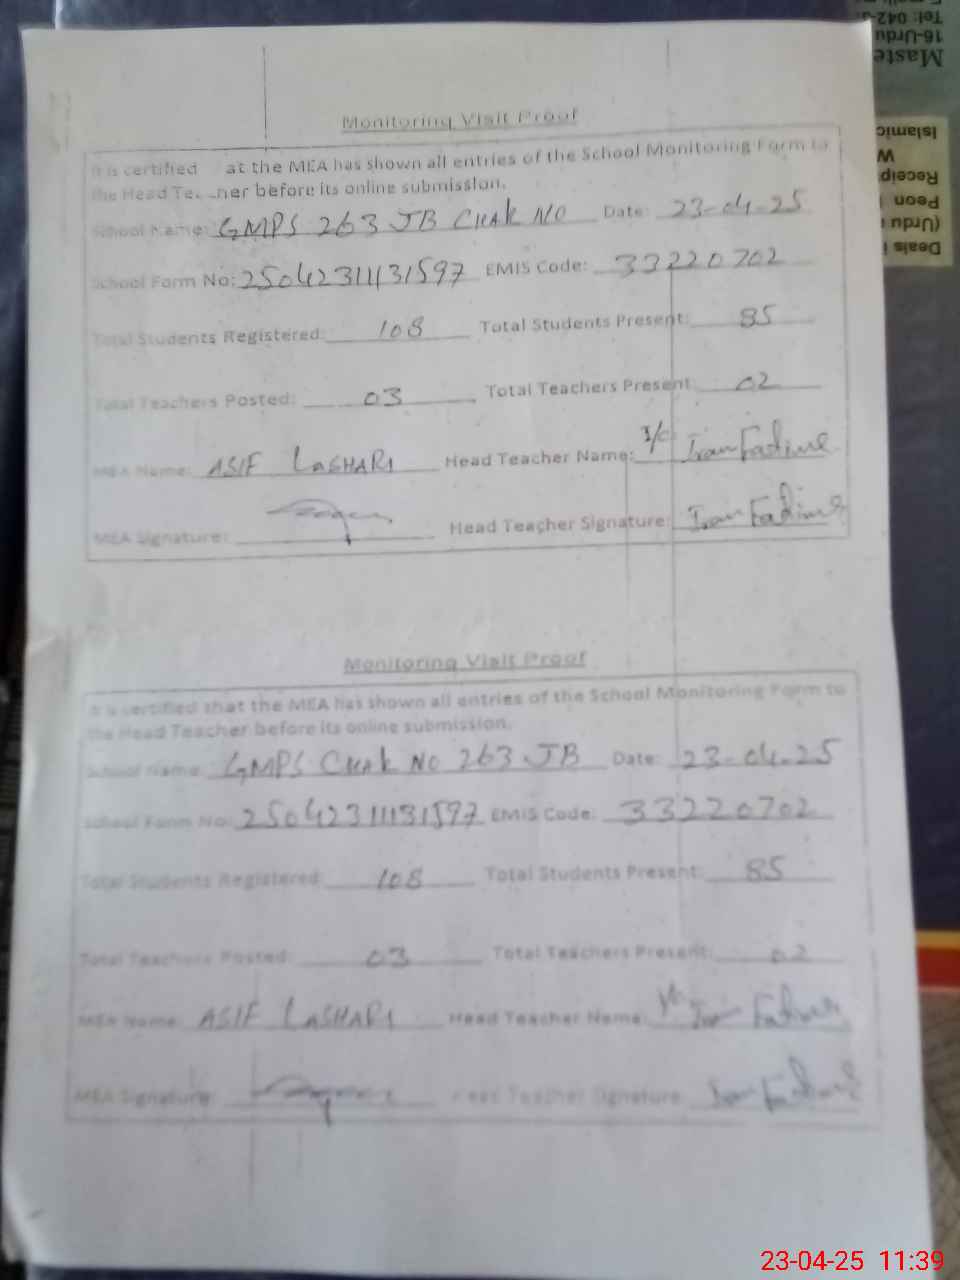 Tel: 042-
16-Urdu
Maste
Islamic
W
Receip
Peon
(Urdu
Deals i
Monitoring Visit Proof
It is certified at the MEA has shown all entries of the School Monitoring Form to
the Head Te ner before its online submission.
School Name: GMPS 263 JB Chak NO Date: 23-04-25
School Form No: EMIS Code: 33220702
Total Students Registered: 108 Total Students Present: 85
Total Teachers Posted: 03 Total Teachers Present: 02
MEA Name: ASIF LASHARI Head Teacher Name: I/C
MEA Signature: Head Teacher Signature:
Monitoring Visit Proof
It is certified that the MEA has shown all entries of the School Monitoring Form to
the Head Teacher before its online submission.
School Name: GMPS Chak NO 263 JB Date: 23-04-25
School Form No: EMIS Code: 33220702
Total Students Registered: 108 Total Students Present: 85
Total Teachers Posted: 03 Total Teachers Present: 02
MEA Name: ASIF LASHARI Head Teacher Name:
MEA Signature: Head Teacher Signature:
23-04-25 11:39